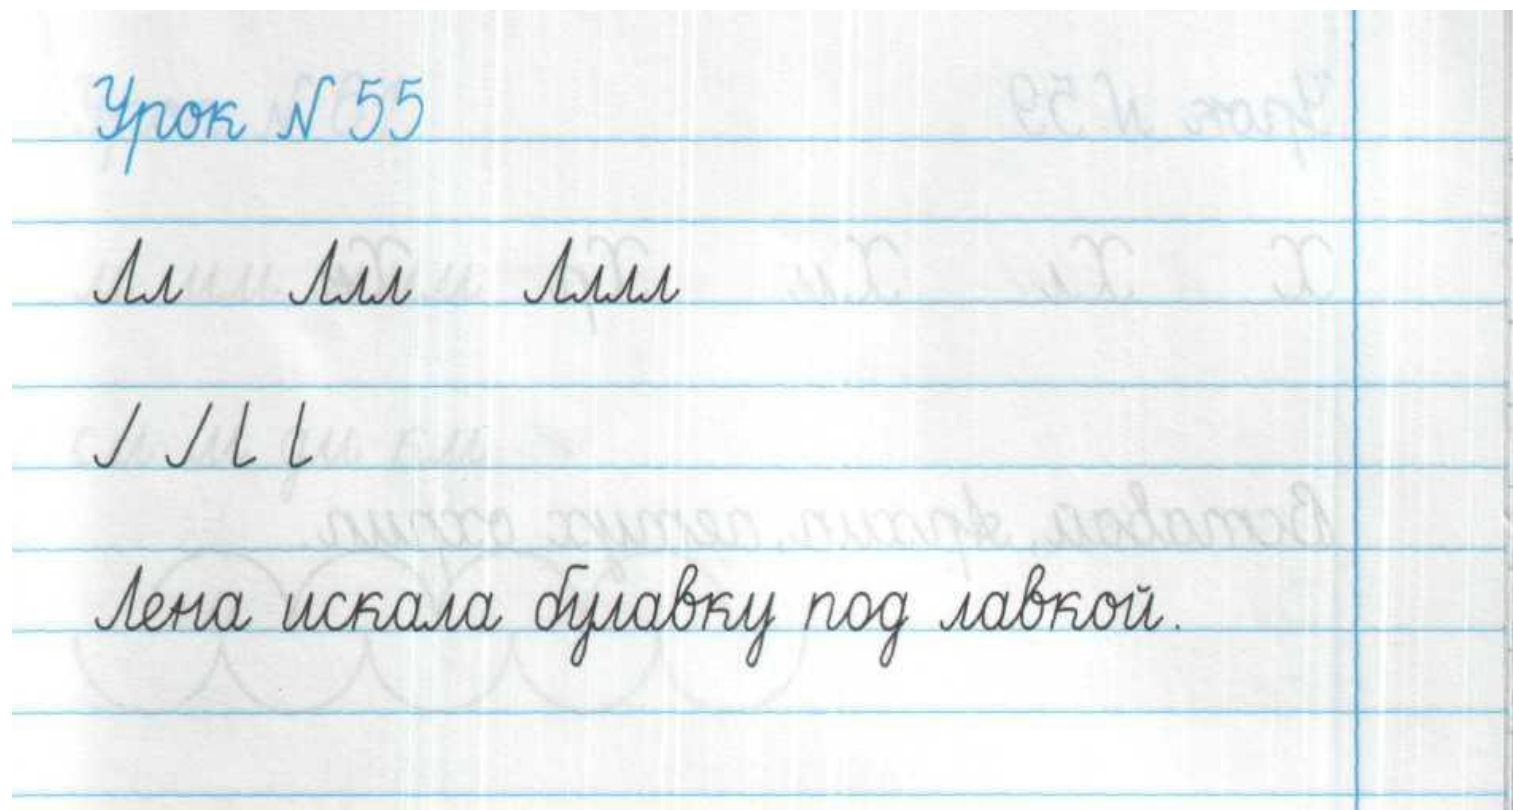 Урок N 55
Лл Ллл Лллл
Лена искала булавку под лавкой.